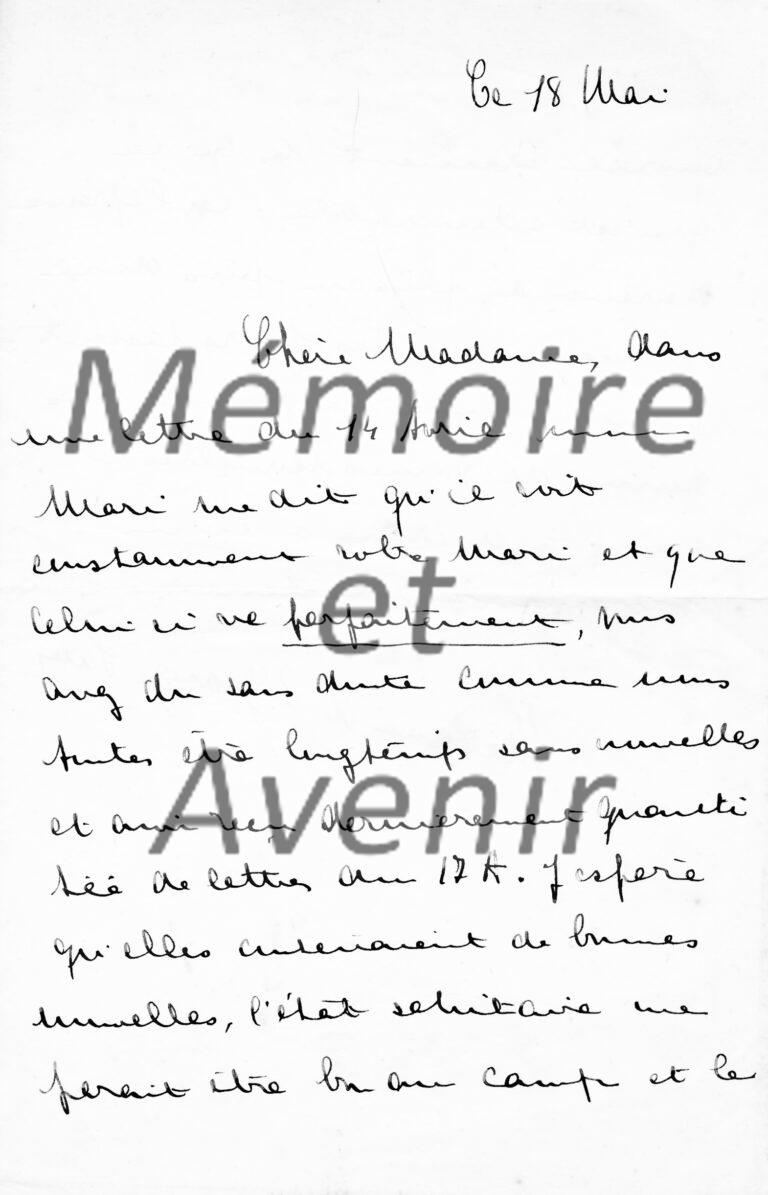 Ce 18 Mai
Chère Madame, dans
une lettre du 14 Avril mon
Mari me dit qu'il voit
constamment votre Mari et que
Celui ci va parfaitement, vous
avez du sans doute comme nous
toutes être longtemps sans nouvelles
et avoir reçu dernièrement quanti
té de lettres du 17 A. J'espère
qu'elles contenaient de bonnes
nouvelles, l'état sanitaire me
parait être bon au camp et le
Mémoire
et
Avenir